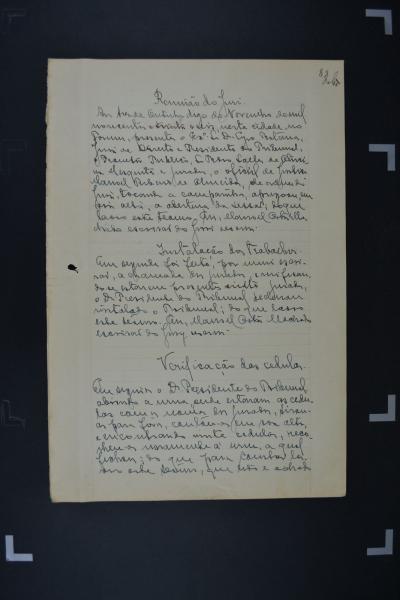 Reunião do Juri.
Aos tres de Outubro, digo de Novembro de mil
novecentos e trinta e seis, nesta cidade, no
Forum, presente o Dr.
Juiz de Direito e Presidente do Tribunal,
o Promotor Publico, Dr. Pedro
e jurados, o official de justiça
Manoel de Almeida, de ordem do
Juiz, tocando a campainha, apregoou em
voz alta, a abertura da sessão; do que
lavro este termo. Eu, Manoel
escrivão do Jury escrevi.
Installação dos Trabalhos
Em seguida foi feita, por mim escri-
vão, a chamada dos jurados, e verifican-
do-se estarem presentes vinte jurados,
o Dr. Presidente do Tribunal declarou
installado o Tribunal; do que lavro
este termo. Eu, Manoel
escrivão do Jury escrevi.
Verificação das cedulas.
Em seguida o Dr. Presidente do Tribunal
abrindo a urna, onde estavam as cedu-
las com os nomes dos jurados,
para fora, contou-as em voz alta,
e encontrando vinte cedulas, reco-
lheu-as novamente á urna, a qual
fechou; do que para constar la-
vro este termo, que lido e achado